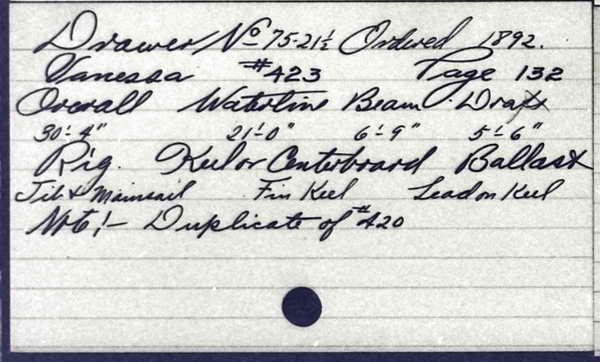 Drawer No 75-21½ Ordered 1892.
Vanessa #423 Page 132
Overall Waterline Beam Draft
30'-4" 21'-0" 6'-9" 5'-6"
Rig. Keel or Centerboard Ballast
Jib & Mainsail Fin Keel Lead on Keel
Note:- Duplicate of #420